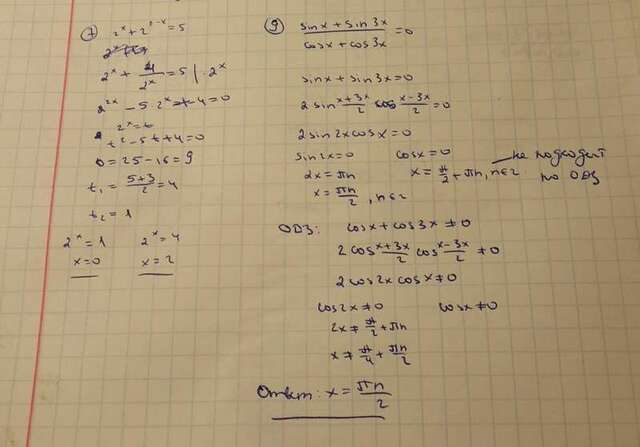 7 2^x + 2^{2-x} = 5
2^x + 4/2^x = 5 | · 2^x
2^{2x} - 5 · 2^x + 4 = 0
2^x = t
t^2 - 5t + 4 = 0
D = 25 - 16 = 9
t_1 = (5+3)/2 = 4
t_2 = 1
2^x = 1 2^x = 4
x = 0 x = 2
9 (sinx + sin3x)/(cosx + cos3x) = 0
sinx + sin3x = 0
2 sin (x+3x)/2 cos (x-3x)/2 = 0
2 sin2x cosx = 0
sin2x = 0 cosx = 0
2x = πn x = π/2 + πn, n∈z не подходит по ОДЗ
x = πn/2, n∈z
ОДЗ: cosx + cos3x ≠ 0
2 cos (x+3x)/2 cos (x-3x)/2 ≠ 0
2 cos2x cosx ≠ 0
cos2x ≠ 0 cosx ≠ 0
2x ≠ π/2 + πn
x ≠ π/4 + πn/2
Ответ: x = πn/2